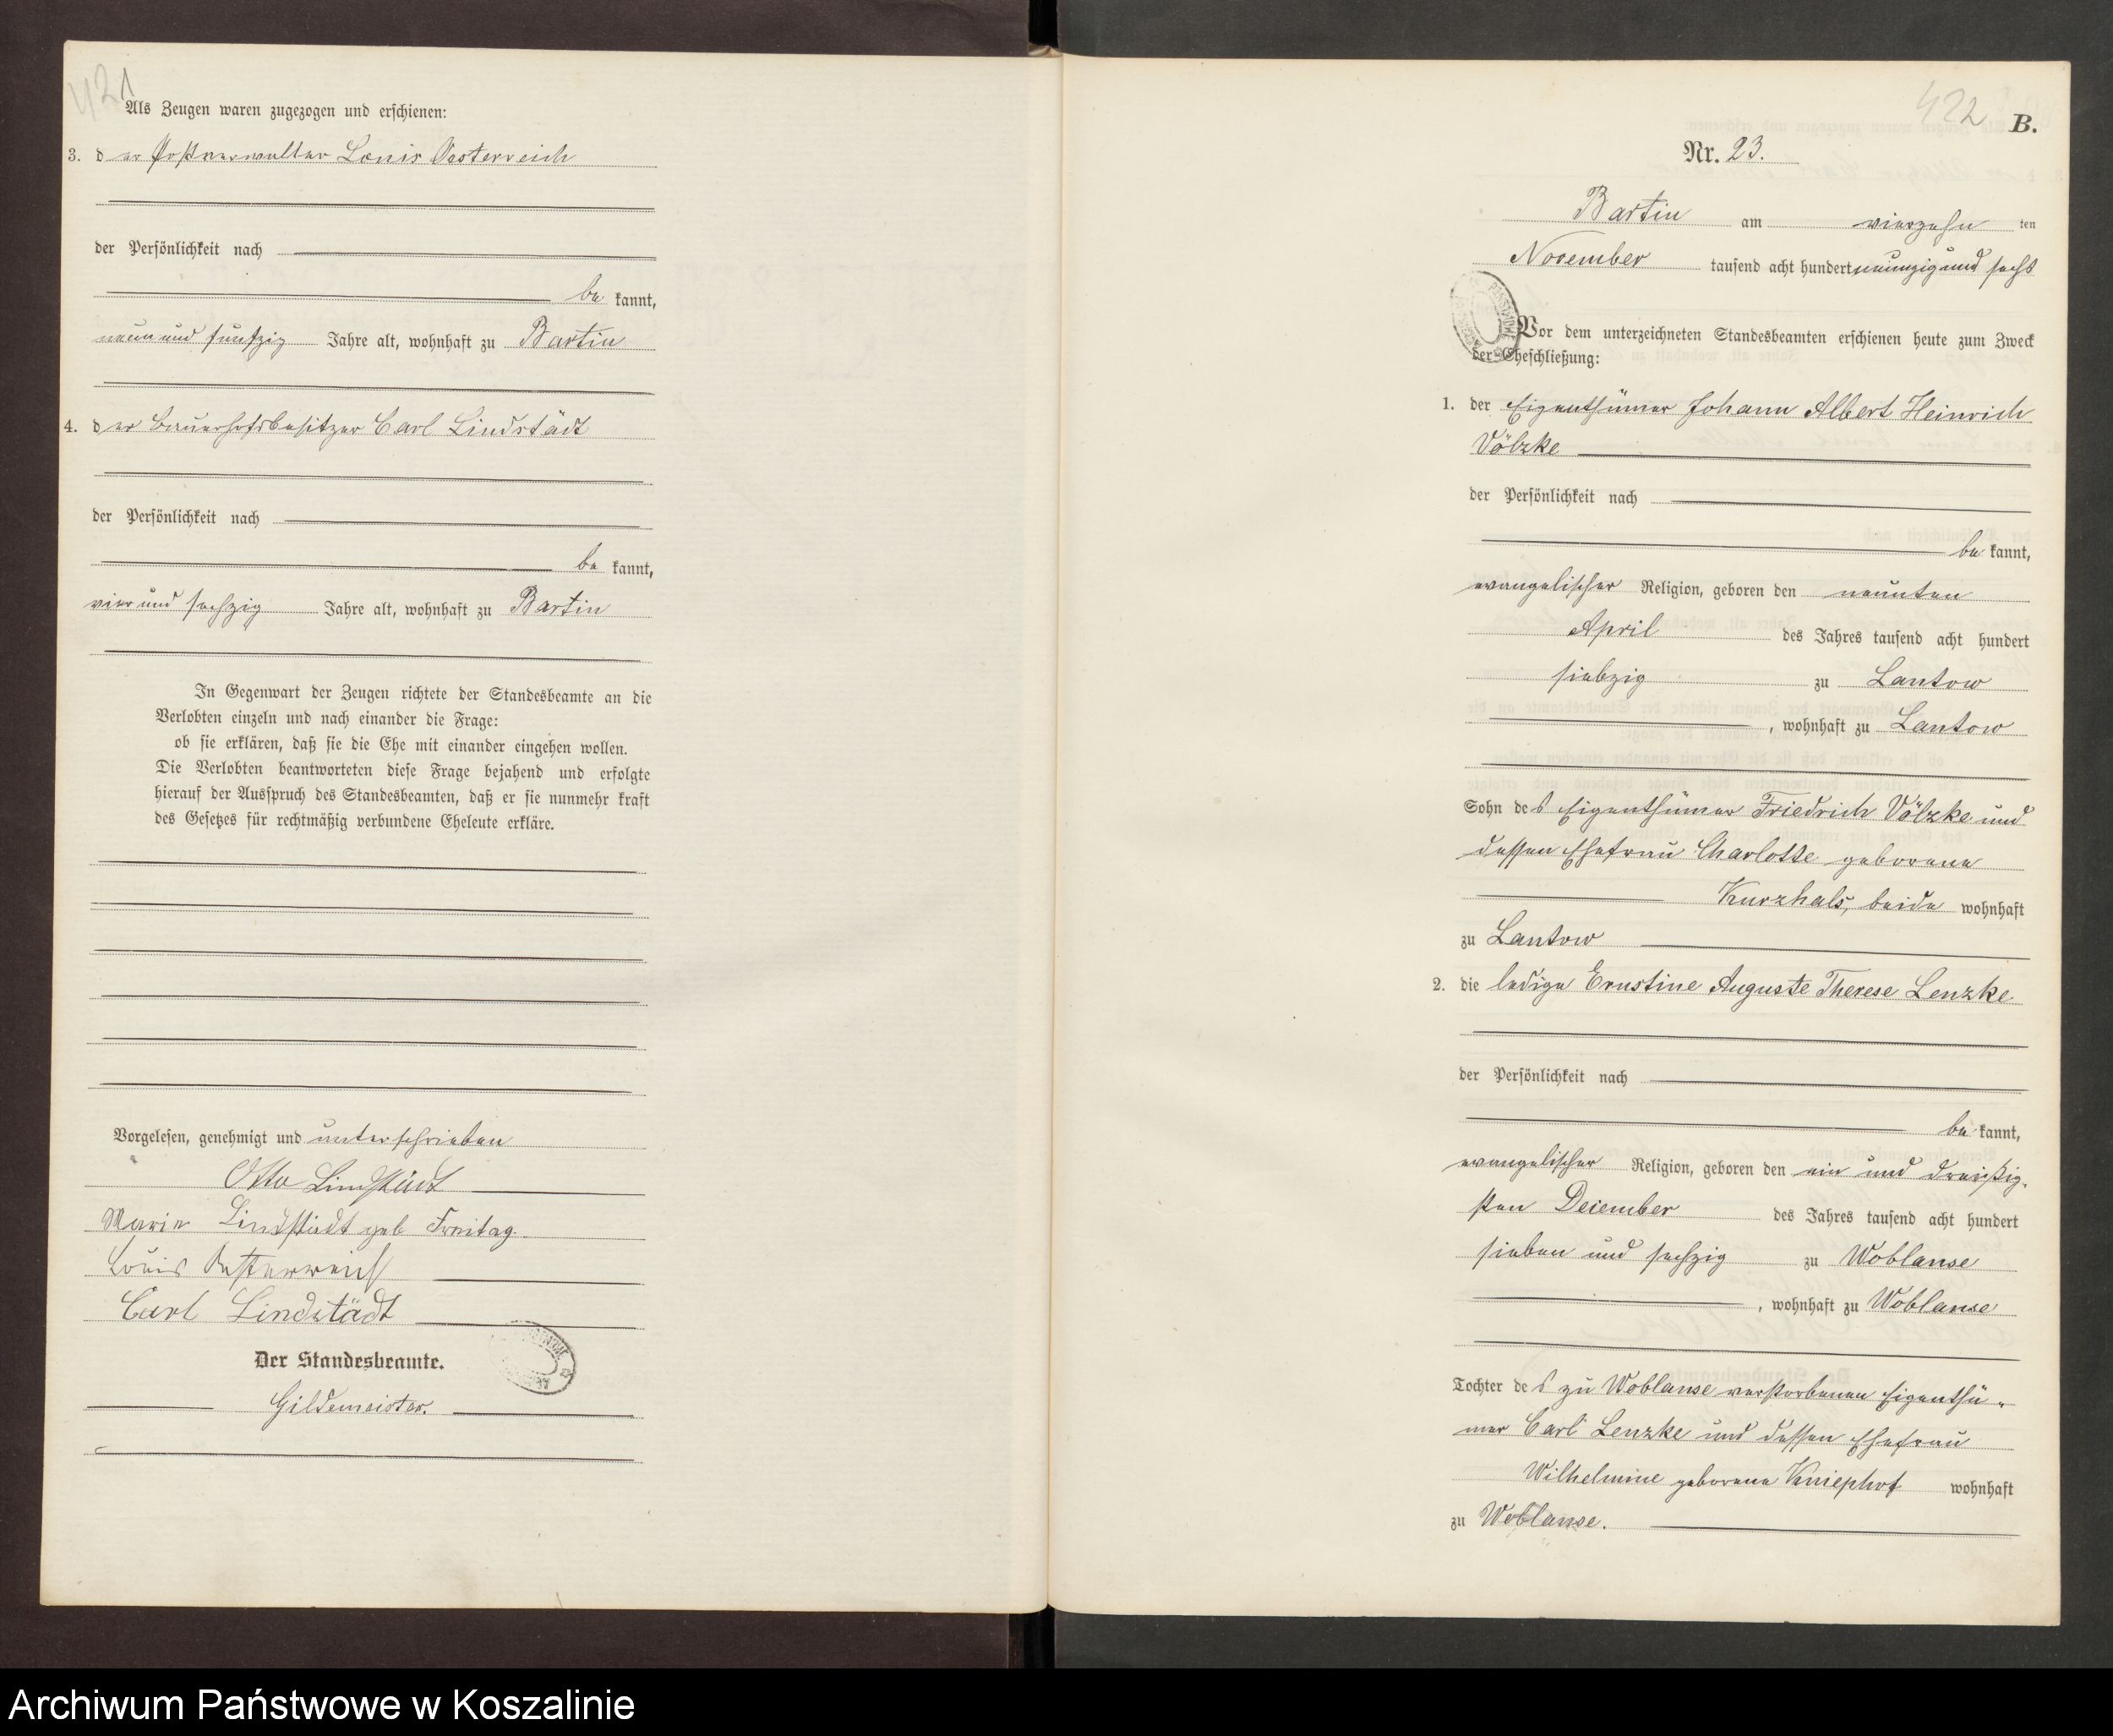 421
Als Zeugen waren zugezogen und erschienen:
3. der Postverwalter Louis Oesterreich
der Persönlichkeit nach
be kannt,
neun und fünfzig Jahre alt, wohnhaft zu Bartin
4. der Bauerhofsbesitzer Carl Lindstädt
der Persönlichkeit nach
be kannt,
vier und sechzig Jahre alt, wohnhaft zu Bartin
In Gegenwart der Zeugen richtete der Standesbeamte an die
Verlobten einzeln und nach einander die Frage:
ob sie erklären, daß sie die Ehe mit einander eingehen wollen.
Die Verlobten beantworteten diese Frage bejahend und erfolgte
hierauf der Ausspruch des Standesbeamten, daß er sie nunmehr kraft
des Gesetzes für rechtmäßig verbundene Eheleute erkläre.
Vorgelesen, genehmigt und unterschrieben
Otto Lindstädt
Marie Lindstädt geb Freitag
Louis Oesterreich
Carl Lindstädt
Der Standesbeamte.
Gildemeister.
422
B.
Nr. 23.
Bartin am vierzehn ten
November tausend acht hundert neunzig und sechs
Vor dem unterzeichneten Standesbeamten erschienen heute zum Zweck
der Eheschließung:
1. der Eigenthümer Johann Albert Heinrich
Völzke
der Persönlichkeit nach
be kannt,
evangelischer Religion, geboren den neunten
April des Jahres tausend acht hundert
siebzig zu Lantow
, wohnhaft zu Lantow
Sohn des Eigenthümer Friedrich Völzke und
dessen Ehefrau Charlotte geborene
Kurzhals, beide wohnhaft
zu Lantow
2. die ledige Ernstine Auguste Therese Lenzke
der Persönlichkeit nach
be kannt,
evangelischer Religion, geboren den ein und dreißig-
sten December des Jahres tausend acht hundert
sieben und sechzig zu Woblanse
, wohnhaft zu Woblanse
Tochter des zu Woblanse verstorbenen Eigenthü-
mer Carl Lenzke und dessen Ehefrau
Wilhelmine geborene Kniephof wohnhaft
zu Woblanse.
Archiwum Państwowe w Koszalinie